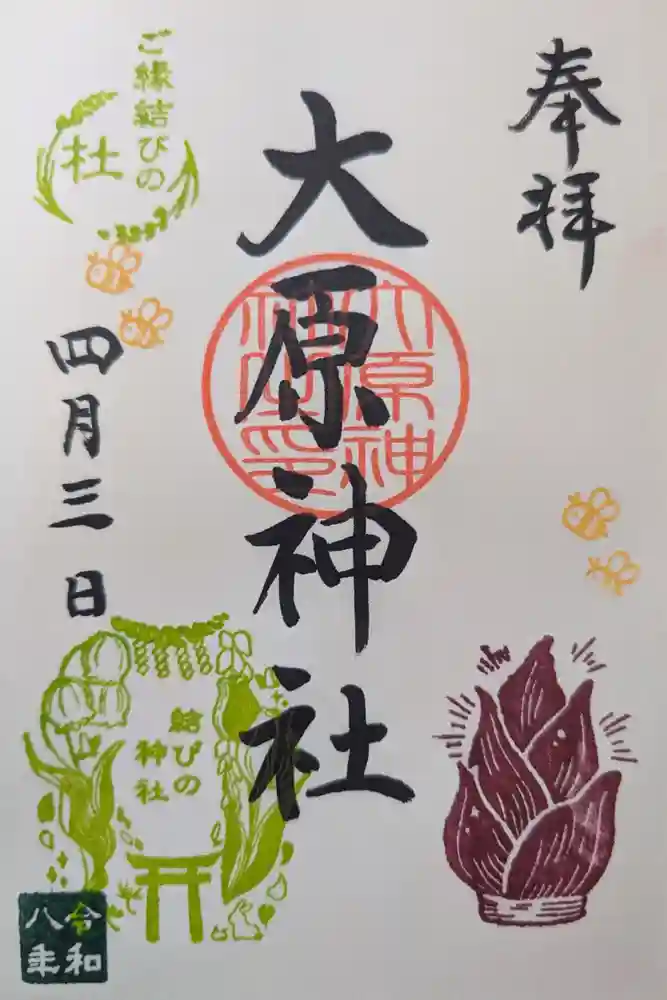 奉拝
大原神社
大原神社之印
ご縁結びの
杜
四月三日
結びの
神社
令和
八年